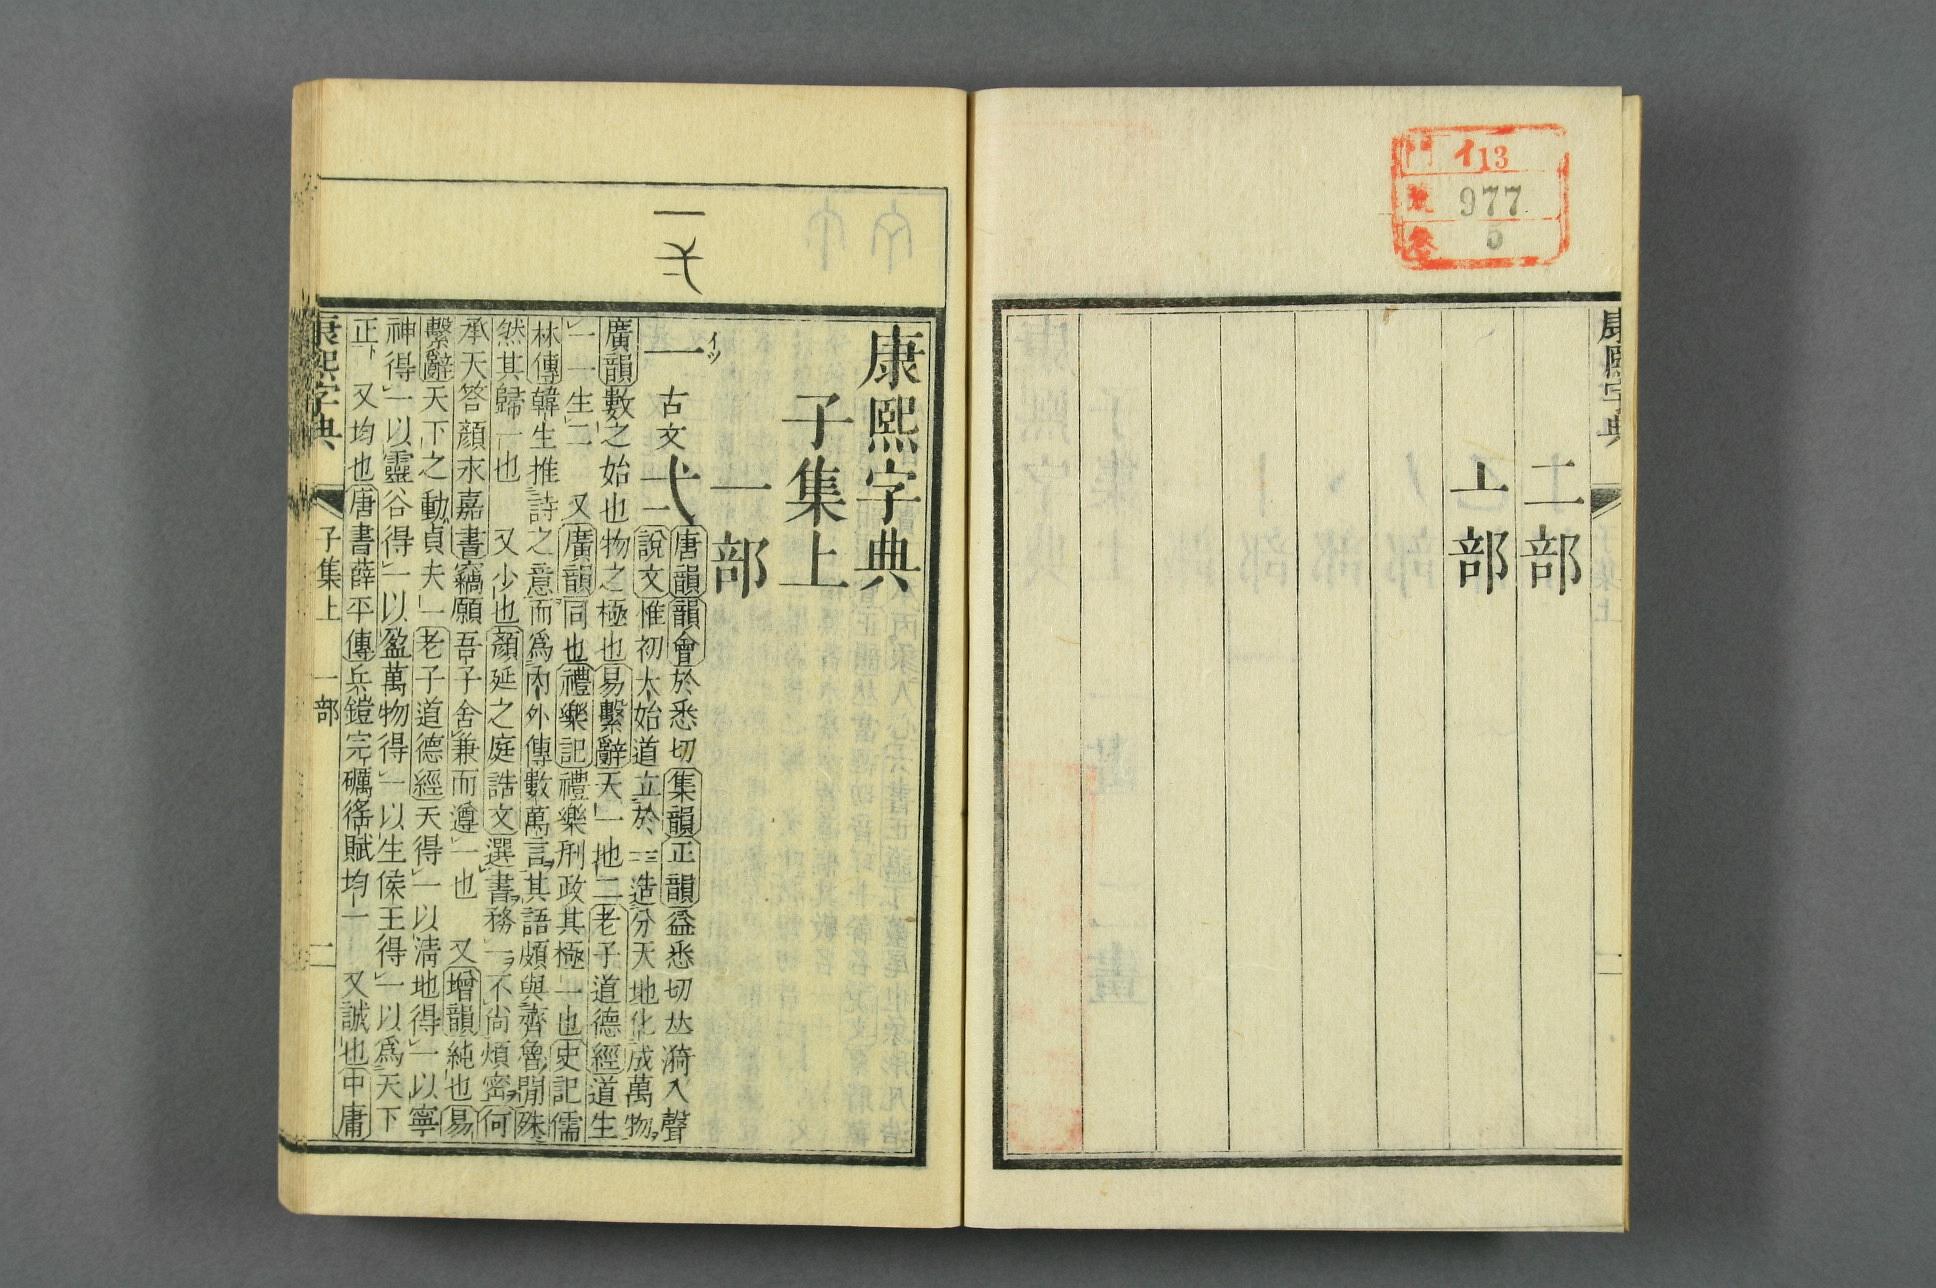 門 イ13
號 977
卷 5
康熙字典 子集上
二部
亠部
一
康熙字典
子集上
一部
イツ
一 古文弌 唐韻韻會於悉切集韻正韻益悉切𠀤漪入聲
說文惟初大始道立於一造分天地化成萬物
廣韻數之始也物之極也易繫辭天一地二老子道德經道生
一一生二 又廣韻同也禮樂記禮樂刑政其極一也史記儒
林傳韓生推詩之意而爲內外傳數萬言其語頗與齊魯閒殊
然其歸一也 又少也顏延之庭誥文選書務一不尚煩密何
承天答顏永嘉書竊願吾子舍兼而遵一也 又增韻純也易
繫辭天下之動貞夫一老子道德經天得一以淸地得一以寧
神得一以靈谷得一以盈萬物得一以生侯王得一以爲天下
正 又均也唐書薛平傳兵鎧完礪徭賦均一 又誠也中庸
康熙字典 子集上 一部 二